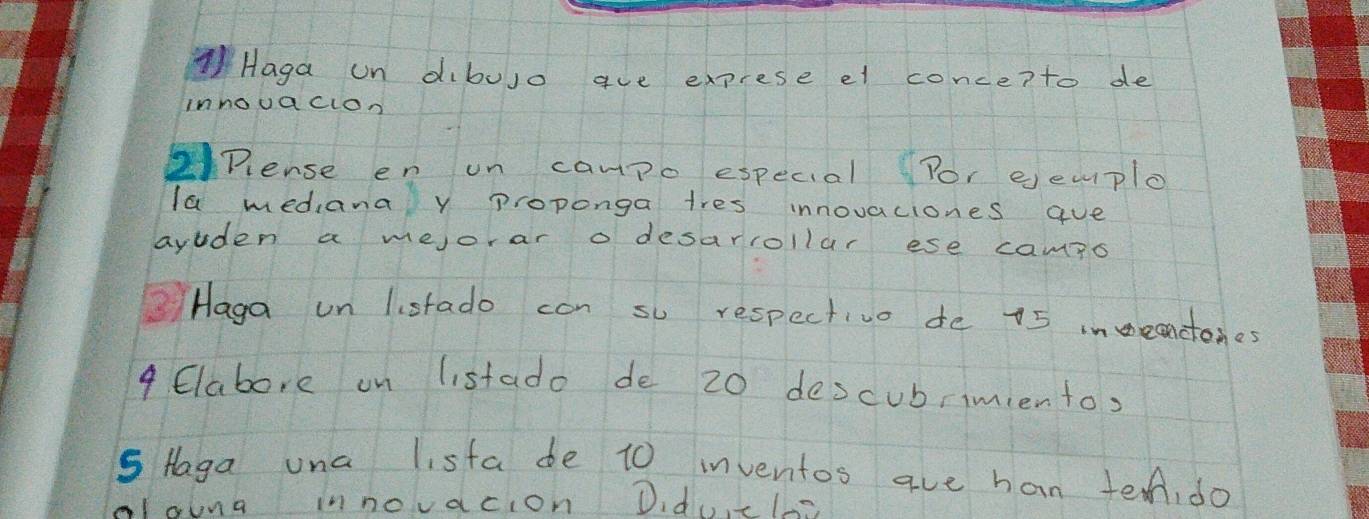 1) Haga un dibujo que exprese el concepto de
innovacion
2) Piense en un campo especial (Por ejemplo
la mediana) y proponga tres innovaciones que
ayuden a mejorar o desarrollar ese campo
3) Haga un listado con su respectivo de 15
4 Elabore un listado de 20 descubrimientos
5 Haga una lista de 10 inventos que han tenido
alguna innovacion